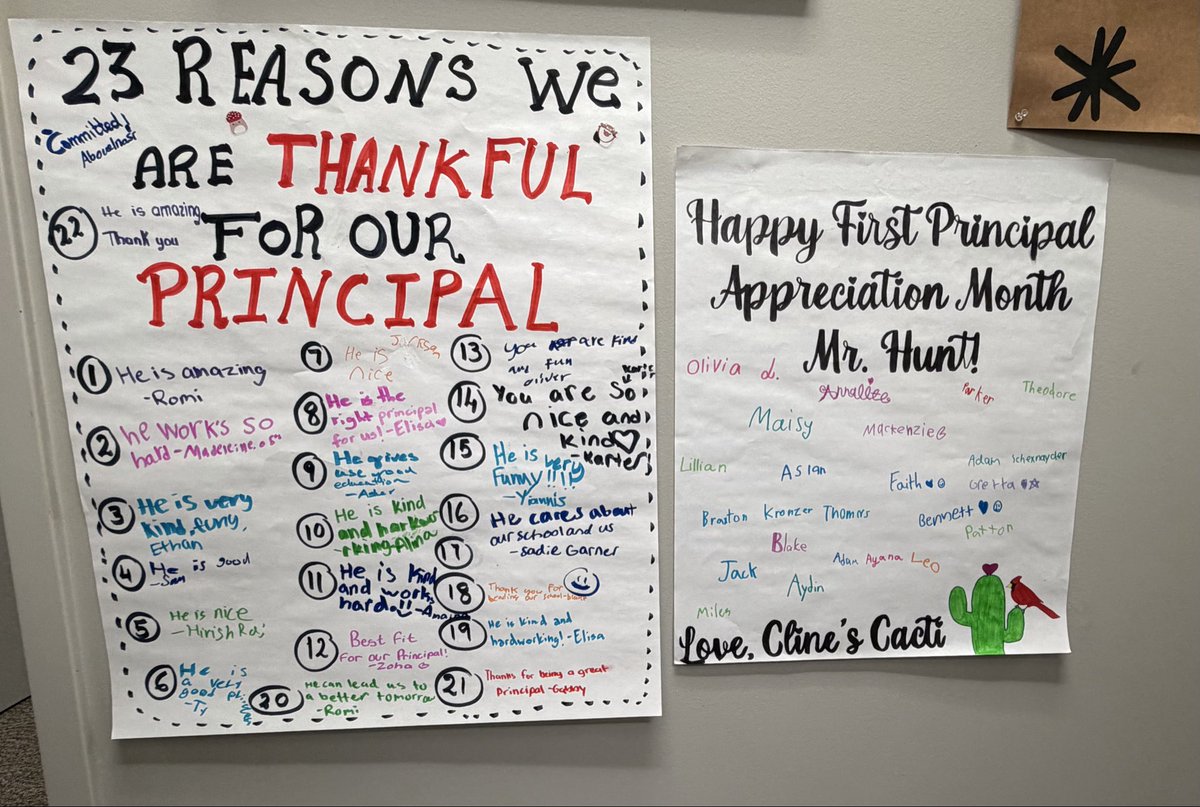 23 REASONS We
Committed!
Abouelnasr
ARE THANKFUL
22 He is amazing
Thank you
FOR OUR
PRINCIPAL
1 He is amazing
-Romi
2 he works so
hard-Madeleine
3 He is very
kind, funy,
Ethan
4 He is good
-Sam
5 He is nice
-Hirish Raj
6 He is
a very
good
-Ty
7 He is Jackson
nice
8 He is the
right principal
for us! -Elisa
9 He gives
use good
education
10 He is kind
and harkwo
rking-Alina
11 He is kind
and works
hard.!!
12 Best fit
For our Principal!
-Zoha
20 He can lead us to
a better tomorrow
-Romi
13 you are kind
fun
oliver
14 You are so
nice and
kind
-Karter
15 He is very
Funny!!!!
-Yiannis
16 He cares about
our school and us
-sadie Garner
17
18 Thank you for
leading our school-
19 He is kind and
hardworking! -Elisa
21 Thanks for being a great
Principal-
Happy First Principal
Appreciation Month
Mr. Hunt!
Olivia d. Annalise Parker Theodore
Maisy Mackenzie
Lillian Aslan Adam Schexnayder
Faith Gretta
Braxton Kronzer Thomas Bennett
Patton
Blake
Jack Adam Ayana Leo
Aydin
Miles
Love, Cline's Cacti